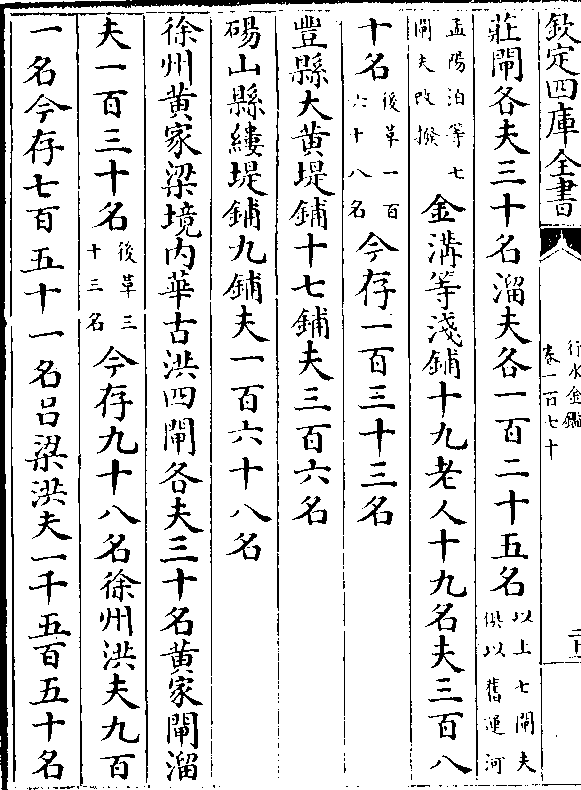 欽定四庫全書
行水金鑑
卷一百七十
莊閘各夫三十名溜夫各一百二十五名以上七閘夫俱以舊運河
孟陽泊等七閘夫改撥金溝等淺鋪十九老人十九名夫三百八
十名後革一百六十八名今存一百三十三名
豐縣大黄堤鋪十七鋪夫三百六名
碭山縣縷堤鋪九鋪夫一百六十八名
徐州黄家梁境内華古洪四閘各夫三十名黄家閘溜
夫一百三十名後革三十三名今存九十八名徐州洪夫九百
一名今存七百五十一名吕梁洪夫一千五百五十名